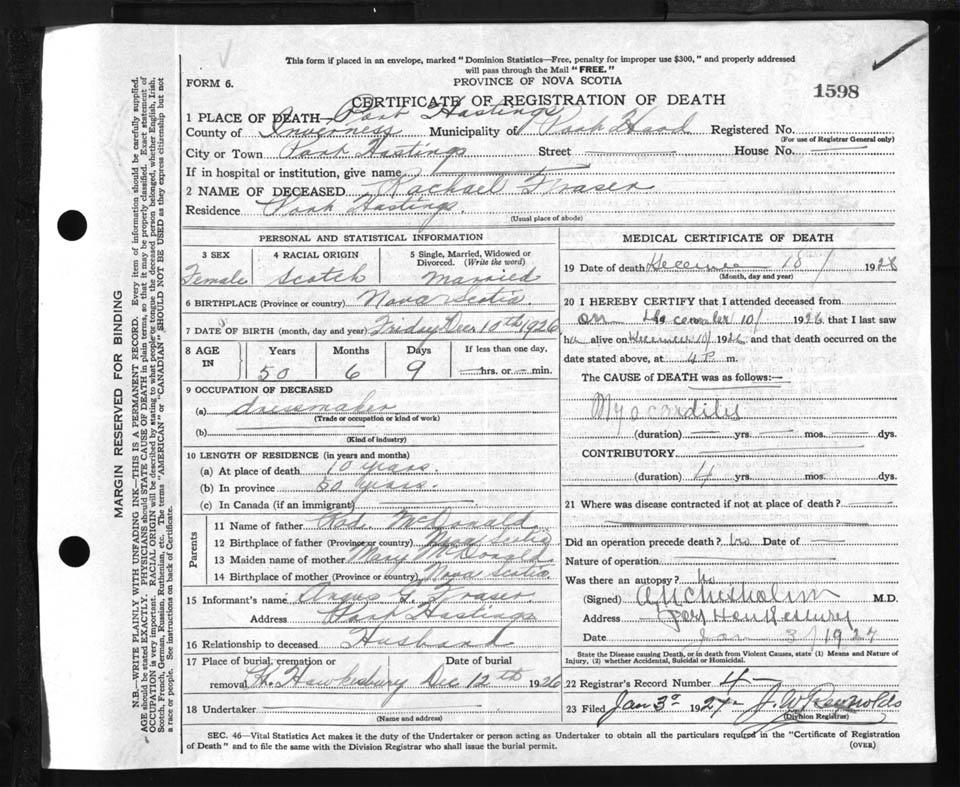 This form if placed in an envelope, marked "Dominion Statistics—Free, penalty for improper use $300," and properly addressed
will pass through the Mail "FREE."
FORM 6.
PROVINCE OF NOVA SCOTIA
CERTIFICATE OF REGISTRATION OF DEATH
1598
1 PLACE OF DEATH— Port Hastings
County of Inverness Municipality of Port Hood Registered No.
(For use of Registrar General only)
City or Town Port Hastings Street House No. —
If in hospital or institution, give name
2 NAME OF DECEASED Rachael Fraser
Residence Port Hastings.
(Usual place of abode)
PERSONAL AND STATISTICAL INFORMATION
3 SEX 4 RACIAL ORIGIN 5 Single, Married, Widowed or Divorced. (Write the word)
Female Scotch Married
6 BIRTHPLACE (Province or country) Nova Scotia
7 DATE OF BIRTH (month, day and year) Friday Dec 10th 1926
8 AGE IN Years Months Days If less than one day,
50 6 9 —hrs. or — min.
9 OCCUPATION OF DECEASED
(a) dressmaker
(Trade or occupation or kind of work)
(b)
(Kind of industry)
10 LENGTH OF RESIDENCE (in years and months)
(a) At place of death 10 years.
(b) In province 50 years.
(c) In Canada (if an immigrant)
Parents
11 Name of father Rod. McDonald
12 Birthplace of father (Province or country) Nova Scotia
13 Maiden name of mother Mary McDonald
14 Birthplace of mother (Province or country) Nova Scotia
15 Informant's name Angus G. Fraser
Address Port Hastings
16 Relationship to deceased Husband
17 Place of burial, cremation or Date of burial
removal H. Hawkesbury Dec 12th 1926
18 Undertaker
(Name and address)
MEDICAL CERTIFICATE OF DEATH
19 Date of death 10/ 1926
(Month, day and year)
20 I HEREBY CERTIFY that I attended deceased from
on December 10/ 1926 that I last saw
her alive on December 10/ 1926 and that death occurred on the
date stated above, at 4 P m.
The CAUSE OF DEATH was as follows:—
Myocarditis
(duration) yrs. mos. dys.
CONTRIBUTORY
(duration) 4 yrs. mos. dys.
21 Where was disease contracted if not at place of death?
Did an operation precede death? No Date of —
Nature of operation
Was there an autopsy? No
(Signed) Chisholm M.D.
Address Port Hawkesbury
Date Jan 3/1927
State the Disease causing Death, or in death from Violent Causes, state (1) Means and Nature of
Injury, (2) whether Accidental, Suicidal or Homicidal.
22 Registrar's Record Number 4—
23 Filed Jan 3rd 1927 J. W. Reynolds
(Division Registrar)
SEC. 46—Vital Statistics Act makes it the duty of the Undertaker or person acting as Undertaker to obtain all the particulars required in the "Certificate of Registration
of Death" and to file the same with the Division Registrar who shall issue the burial permit.
(OVER)
MARGIN RESERVED FOR BINDING
N.B.—WRITE PLAINLY WITH UNFADING INK—THIS IS A PERMANENT RECORD. Every item of information should be carefully supplied.
AGE should be stated EXACTLY. PHYSICIANS should STATE CAUSE OF DEATH in plain terms, so that it may be properly classified. Exact statement of
OCCUPATION is very important. RACIAL ORIGIN will be described by stating to what people or tongue the deceased person belonged, whether English, Irish,
Scotch, French, German, Russian, Ruthenian, etc. The terms "AMERICAN" or "CANADIAN" SHOULD NOT BE USED as they express citizenship but not
a race or people. See instructions on back of Certificate.